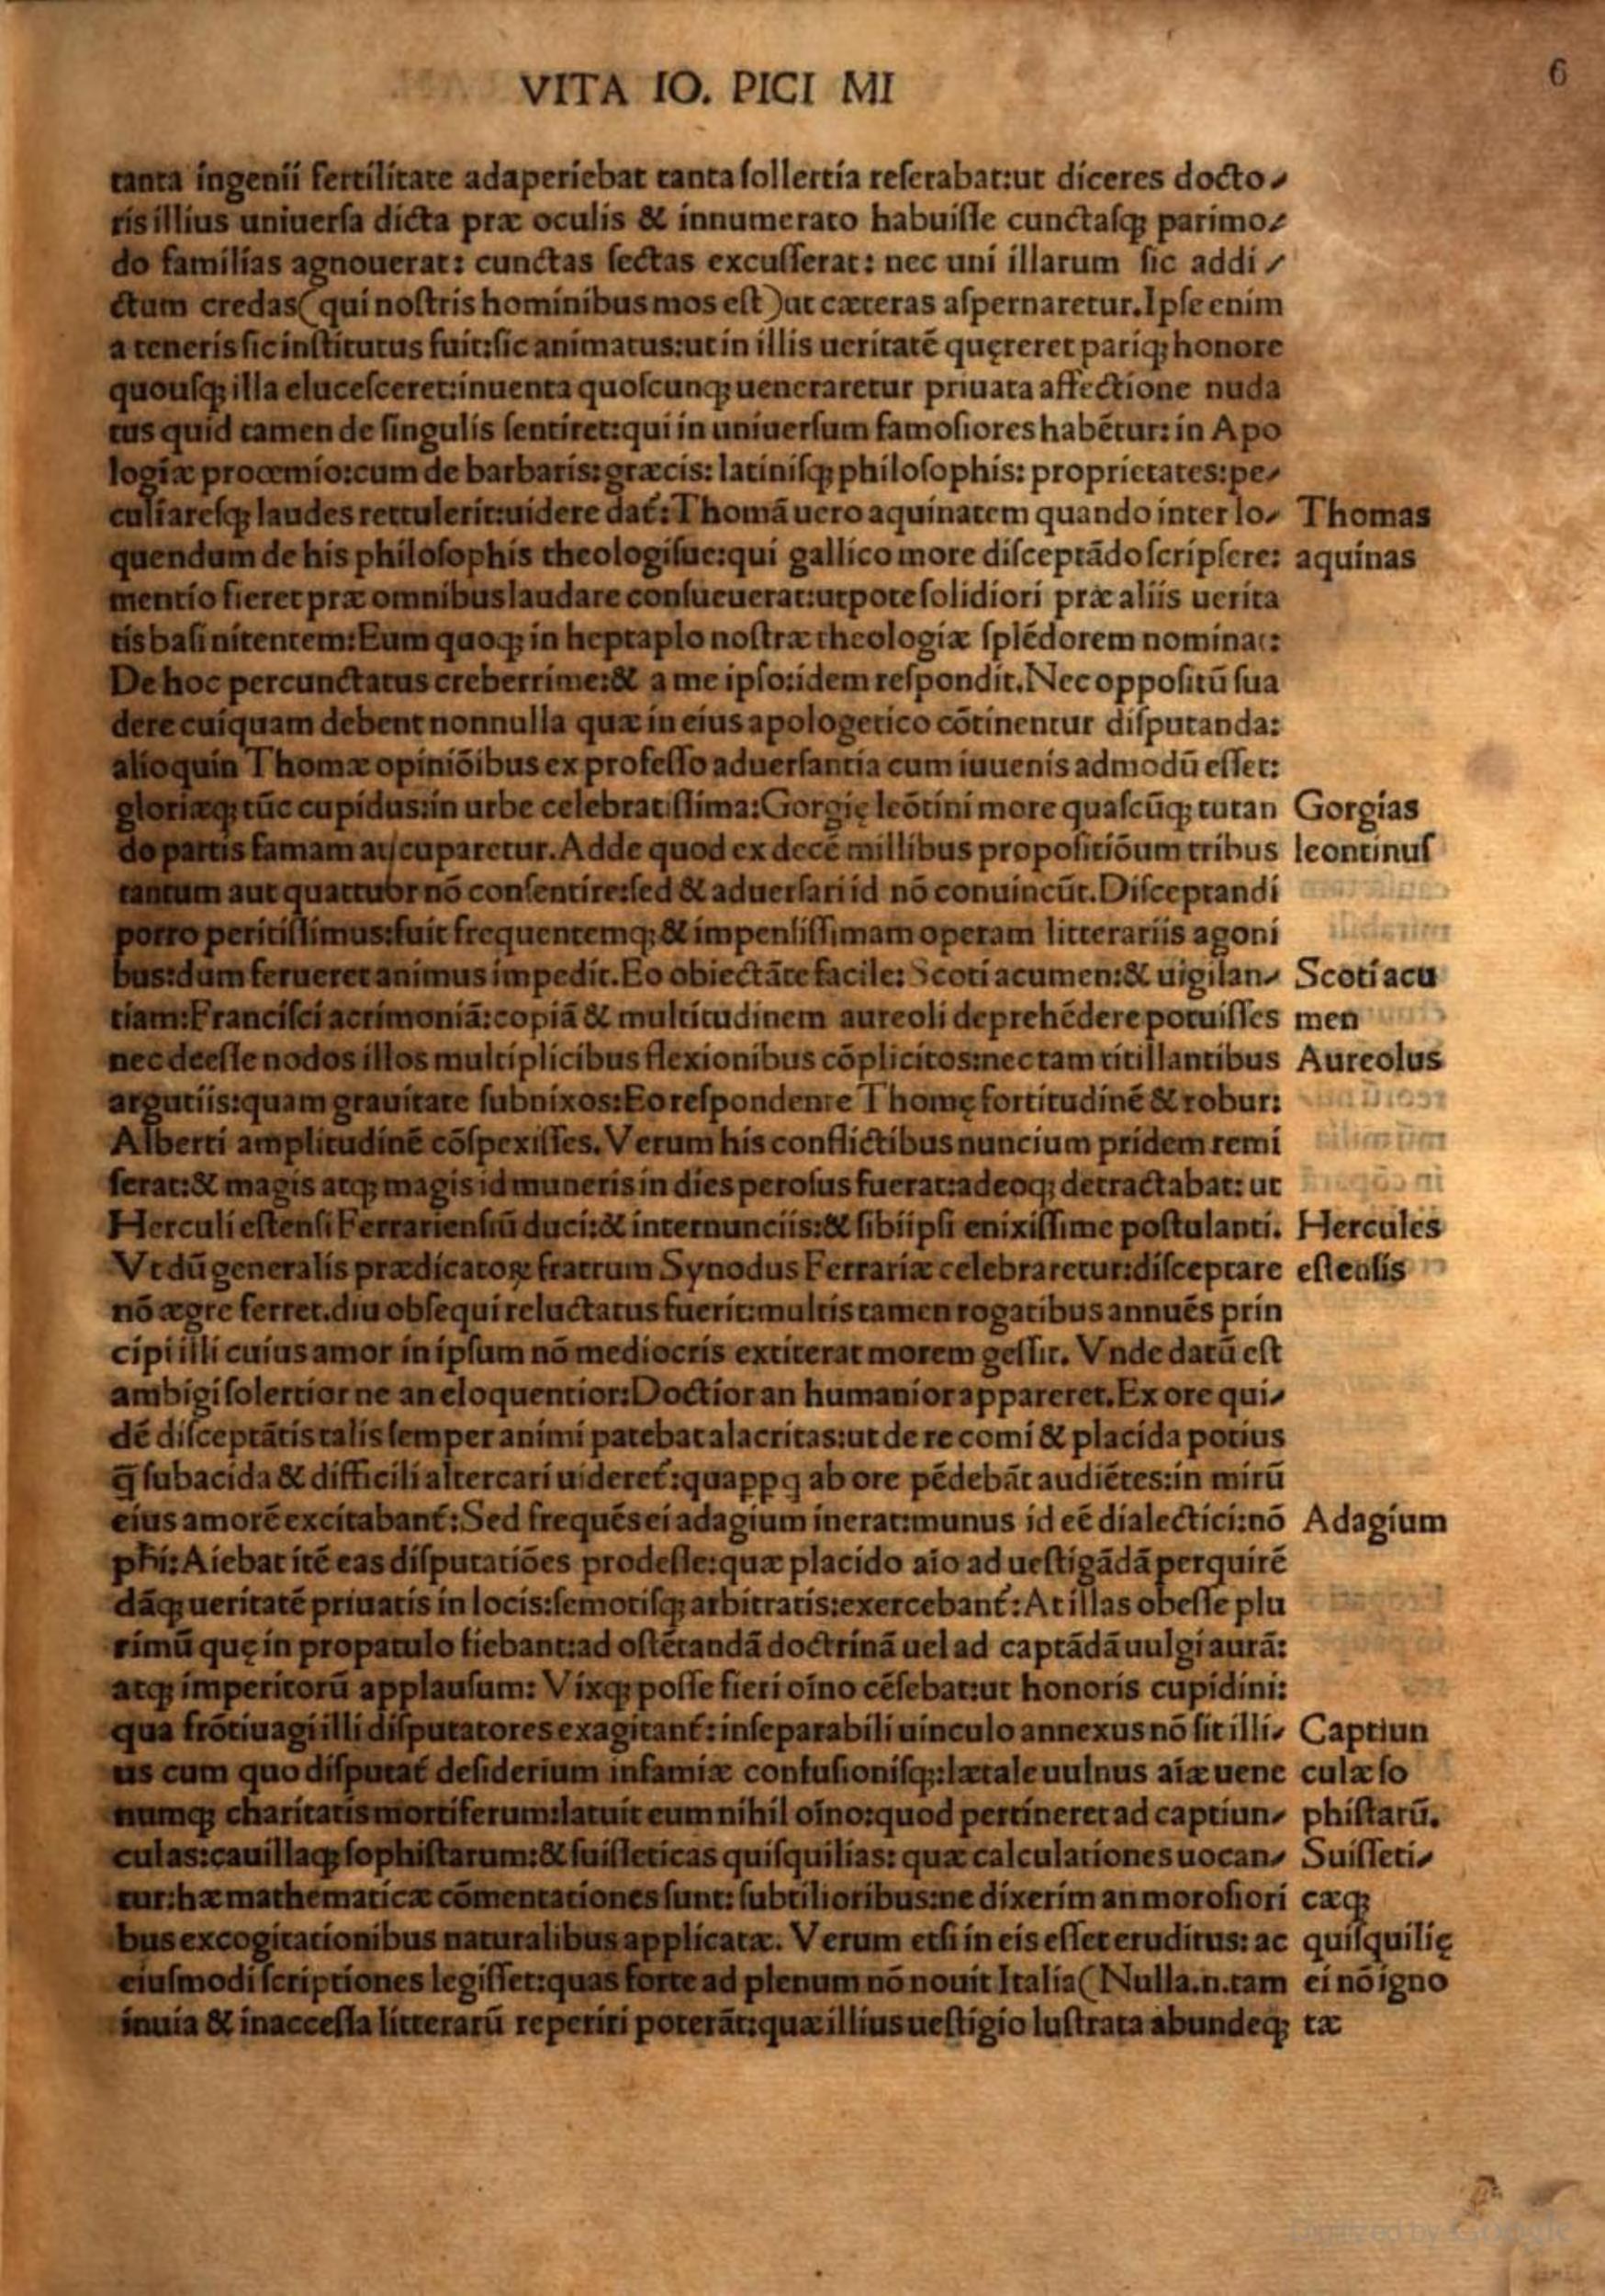 6
VITA IO. PICI MI
tanta ingenii fertilitate adaperiebat tanta ſollertia reſerabat:ut diceres docto⸗
ris illius uniuerſa dicta præ oculis & innumerato habuiſſe cunctaſqꝫ parimo⸗
do familias agnouerat: cunctas ſectas excuſſerat: nec uni illarum ſic addi⸗
ctum credas(qui noſtris hominibus mos eſt)ut cæteras aſpernaretur.Ipſe enim
a teneris ſic inſtitutus fuit:ſic animatus:ut in illis ueritatē quęreret pariqꝫ honore
quouſqꝫ illa eluceſceret:inuenta quoſcunqꝫ ueneraretur priuata affectione nuda
tus quid tamen de ſingulis ſentiret:qui in uniuerſum famoſiores habētur: in Apo
logiæ procemio:cum de barbaris:græcis: latiniſqꝫ philoſophis: proprietates:pe⸗
culiareſqꝫ laudes rettulerit:uidere dat́:Thomā uero aquinatem quando inter lo⸗ Thomas
quendum de his philoſophis theologiſue:qui gallico more diſceptādo ſcripſere: aquinas
mentio fieret præ omnibus laudare conſueuerat:utpote ſolidiori præ aliis uerita
tis baſi nitentem:Eum quoqꝫ in heptaplo noſtræ theologiæ ſplēdorem nominat:
De hoc percunctatus creberrime:& a me ipſo:idem reſpondit.Nec oppoſitū ſua
dere cuiquam debent nonnulla quæ in eius apologetico cōtinentur diſputanda:
alioquin Thomæ opiniōibus ex profeſſo aduerſantia cum iuuenis admodū eſſet:
gloriæqꝫ tūc cupidus:in urbe celebratiſſima:Gorgię leōtini more quaſcūqꝫ tutan Gorgias
do partis famam aucuparetur.Adde quod ex decē millibus propoſitiōum tribus leontinuſ
tantum aut quattuor nō conſentire:ſed & aduerſari id nō conuincūt.Diſceptandi
porro peritiſſimus:fuit frequentemqꝫ & impenſiſſimam operam litterariis agoni
bus:dum ferueret animus impedit.Eo obiectāte facile: Scoti acumen:& uigilan⸗ Scoti acu
tiam:Franciſci acrimoniā:copiā & multitudinem aureoli deprehēdere potuiſſes men
nec deeſſe nodos illos multiplicibus flexionibus cōplicitos:nec tam titillantibus Aureolus
argutiis:quam grauitate ſubnixos:Eo reſpondente Thomę fortitudinē & robur:
Alberti amplitudinē cōſpexiſſes.Verum his conflictibus nuncium pridem remi
ſerat:& magis atqꝫ magis id muneris in dies peroſus fuerat:adeoqꝫ detractabat: ut
Herculi eſtenſi Ferrarienſiū duci:& internunciis:& ſibi ipſi enixiſſime poſtulanti. Hercules
Vt dū generalis prædicatoꝝ fratrum Synodus Ferrariæ celebraretur:diſceptare eſtenſis
nō ægre ferret.diu obſequi reluctatus fuerit:multis tamen rogatibus annuēs prin
cipi illi cuius amor in ipſum nō mediocris extiterat morem geſſit. Vnde datū eſt
ambigi ſolertior ne an eloquentior:Doctior an humanior appareret.Ex ore qui⸗
dē diſceptātis talis ſemper animi patebat alacritas:ut de re comi & placida potius
q̄ ſubacida & difficili altercari uideret́:qua ꝓpꝗ ab ore pēdebāt audiētes:in mirū
eius amorē excitabant́:Sed frequēs ei adagium inerat:munus id eē dialectici:nō Adagium
phi:Aiebat itē eas diſputatiōes prodeſſe:quæ placido aīo ad ueſtigādā perquirē
dāqꝫ ueritatē priuatis in locis:ſemotiſqꝫ arbitratis:exercebant́:At illas obeſſe plu
rimū quę in propatulo fiebant:ad oſtētandā doctrinā uel ad captādā uulgi aurā:
atqꝫ imperitorū applauſum: Vixqꝫ poſſe fieri oīno cēſebat:ut honoris cupidini:
qua frōtiuagi illi diſputatores exagitant́:inſeparabili uinculo annexus nō ſit illi⸗ Captiun
us cum quo diſputat́ deſiderium infamiæ confuſioniſqꝫ:lætale uulnus aīæ uene culæ ſo
numqꝫ charitatis mortiferum:latuit eum nihil oīno:quod pertineret ad captiun⸗ phiſtarū.
culas:cauillaqꝫ ſophiſtarum:& ſuiſſeticas quiſquilias: quæ calculationes uocan⸗ Suiſſeti⸗
tur:hæ mathematicæ cōmentationes ſunt: ſubtilioribus:ne dixerim an moroſiori cæqꝫ
bus excogitationibus naturalibus applicatæ. Verum etſi in eis eſſet eruditus: ac quiſquilię
eiuſmodi ſcriptiones legiſſet:quas forte ad plenum nō nouit Italia(Nulla.n.tam ei nō igno
inuia & inacceſſa litterarū reperiri poterāt:quæ illius ueſtigio luſtrata abundeqꝫ tæ
Digitized by Google